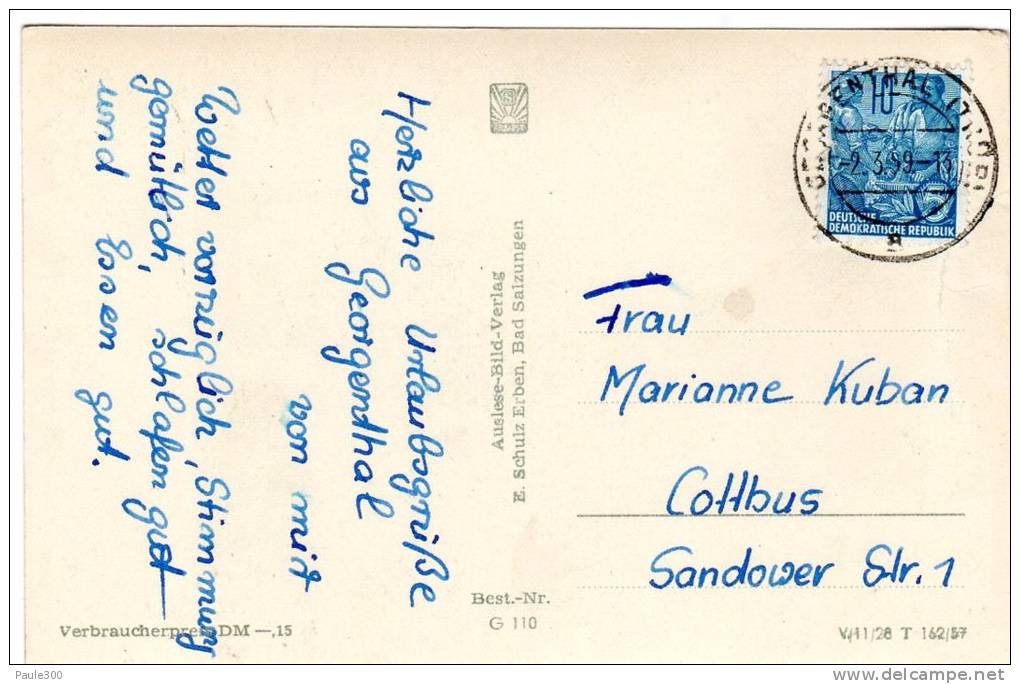 Herzliche Urlaubsgrüße
aus Georgenthal
von mir
Wetter vorzüglich, Stimmung
gemütlich, schlafen gut
und Essen gut.
Auslese-Bild-Verlag
E. Schulz Erben, Bad Salzungen
10
DEUTSCHE
DEMOKRATISCHE REPUBLIK
5
GEORGENTHAL (THÜR)
-2.3.59.-13
a
Frau
Marianne Kuban
Cottbus
Sandower Str. 1
Best.-Nr.
G 110
Verbraucherpreis DM —,15
V/11/28 T 162/57
Paule300
delcampe.net